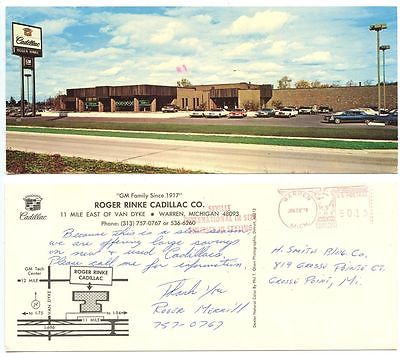 Cadillac
ROGER RINKE
GM
"GM Family Since 1917"
ROGER RINKE CADILLAC CO.
11 MILE EAST OF VAN DYKE • WARREN, MICHIGAN 48093
Phone: (313) 757-0767 or 536-6260
Cadillac
Because this is a slow season,
we are offering large savings
on new & used Cadillacs.
Please call me for information.
Thank You
Roger Merrill
757-0767
H. Smith Bldg. Co.
819 Grosse Pointe Ct.
Grosse Point, Mi.
GM Tech
Center
12 MILE
VAN DYKE
ROGER RINKE
CADILLAC
N
to I-75
11 MILE
to I-94
I-696